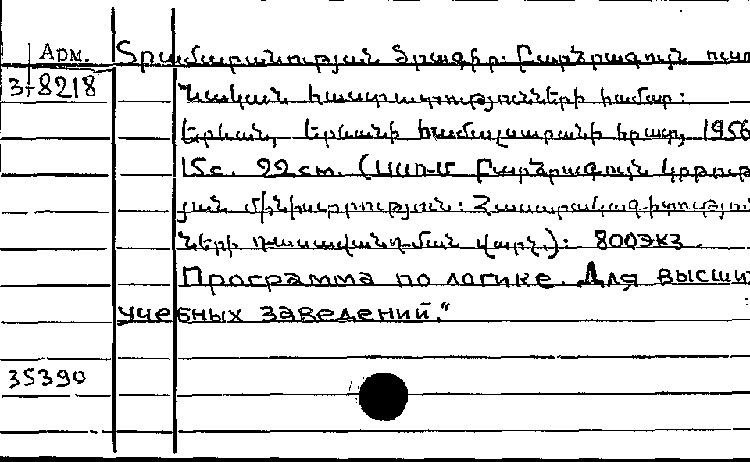 Арм. Տրամաբանության ծրագիր: Բարձրագույն ուս
3-8218 նական հաստատությունների համար:
Երևան, Երևանի համալսարանի հրատ, 1956
15с. 22см. (ՍՍՌՄ Բարձրագույն կրթու
յան մինիստրություն: Հասարակագիտությու
ների դասավանդման վարչ.): 800экз.
Программа по логике. Для высши
учебных заведений."
35390